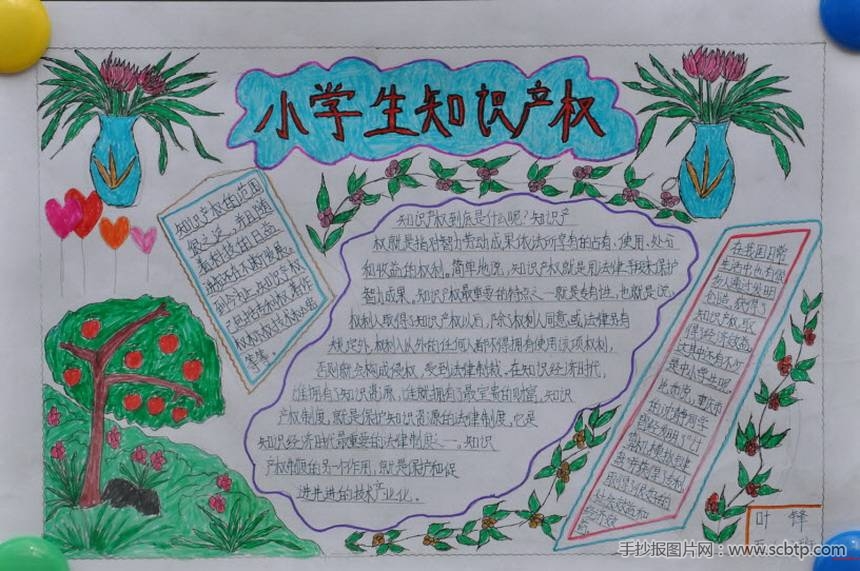 小学生知识产权
知识产权的范围
着科技的日益
进步还在不断发展。
到今为止，知识产权
已包括专利权、著作
等等。
知识产权到底是什么呢？知识产
权就是指对智力劳动成果依法所享有的占有、使用、处分
和收益的权利。简单地说，知识产权就是用法律手段来保护
智力成果。知识产权最重要的特点之一就是专有性，也就是说，
权利人取得了知识产权以后，除了权利人同意或法律另有
规定外，权利人以外的任何人都不得拥有使用该项权利，
否则就会构成侵权，受到法律制裁。在知识经济时代，
谁拥有了知识资源，谁就拥有了最宝贵的财富，知识
产权制度，就是保护知识资源的法律制度，它是
知识经济时代最重要的法律制度之一。知识
产权制度的另一作用，就是保护和促
进先进的技术产业化。
在我国日常
生活中也有很
多人通过发明
创造，获得了
知识产权，取
得了经济效益，
这其中不有不少
是中小学生呢。
比如说，重庆市
的沈诗同学
曾经发明了"十
社会效益和
经济效
益。
叶 锋
手抄报图片网：www.scbtp.com